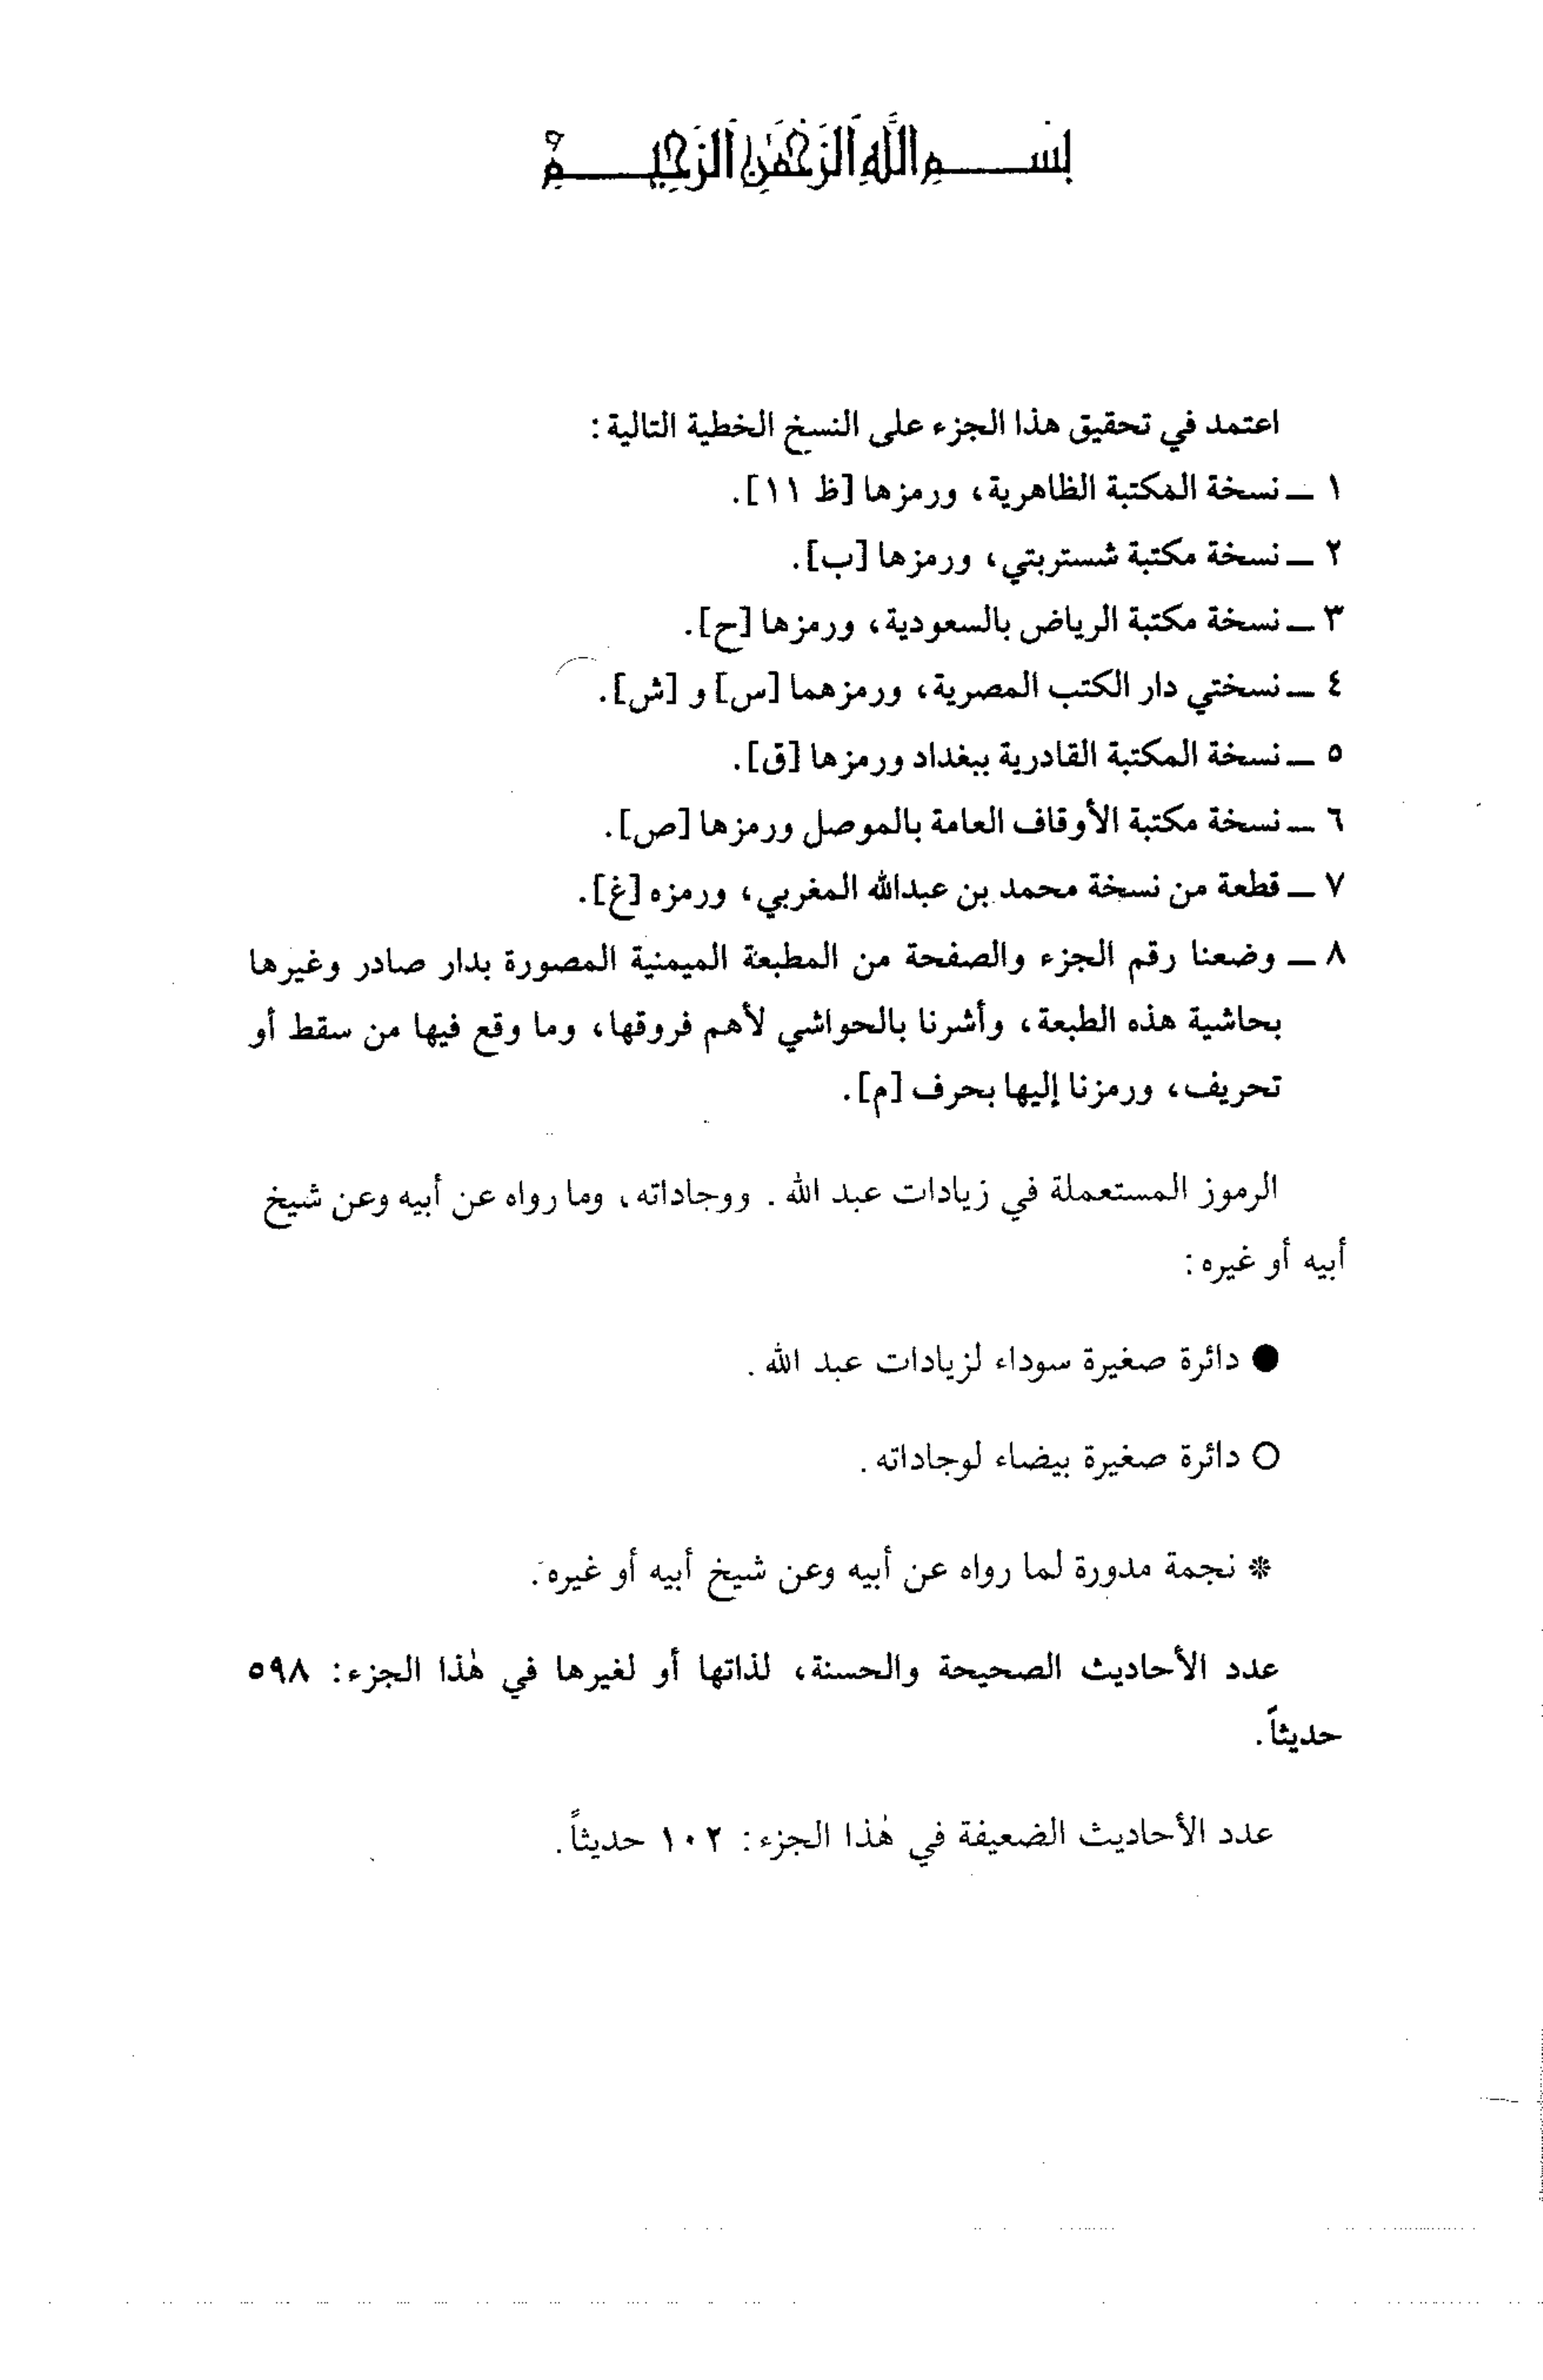 بسم الله الرحمن الرحيم
اعتمد في تحقيق هذا الجزء على النسخ الخطية التالية:
١ ــ نسخة المكتبة الظاهرية، ورمزها [ظ ١١].
٢ ــ نسخة مكتبة شستربتي، ورمزها [ب].
٣ ــ نسخة مكتبة الرياض بالسعودية، ورمزها [ح].
٤ ــ نسختي دار الكتب المصرية، ورمزهما [س] و [ش].
٥ ــ نسخة المكتبة القادرية ببغداد ورمزها [ق].
٦ ــ نسخة مكتبة الأوقاف العامة بالموصل ورمزها [ص].
٧ ــ قطعة من نسخة محمد بن عبدالله المغربي، ورمزه [غ].
٨ ــ وضعنا رقم الجزء والصفحة من المطبعة الميمنية المصورة بدار صادر وغيرها
بحاشية هذه الطبعة، وأشرنا بالحواشي لأهم فروقها، وما وقع فيها من سقط أو
تحريف، ورمزنا إليها بحرف [م].
الرموز المستعملة في زيادات عبد الله . ووجاداته، وما رواه عن أبيه وعن شيخ
أبيه أو غيره:
● دائرة صغيرة سوداء لزيادات عبد الله .
○ دائرة صغيرة بيضاء لوجاداته .
* نجمة مدورة لما رواه عن أبيه وعن شيخ أبيه أو غيره.
عدد الأحاديث الصحيحة والحسنة، لذاتها أو لغيرها في هٰذا الجزء: ٥٩٨
حديثاً.
عدد الأحاديث الضعيفة في هٰذا الجزء: ١٠٢ حديثاً.